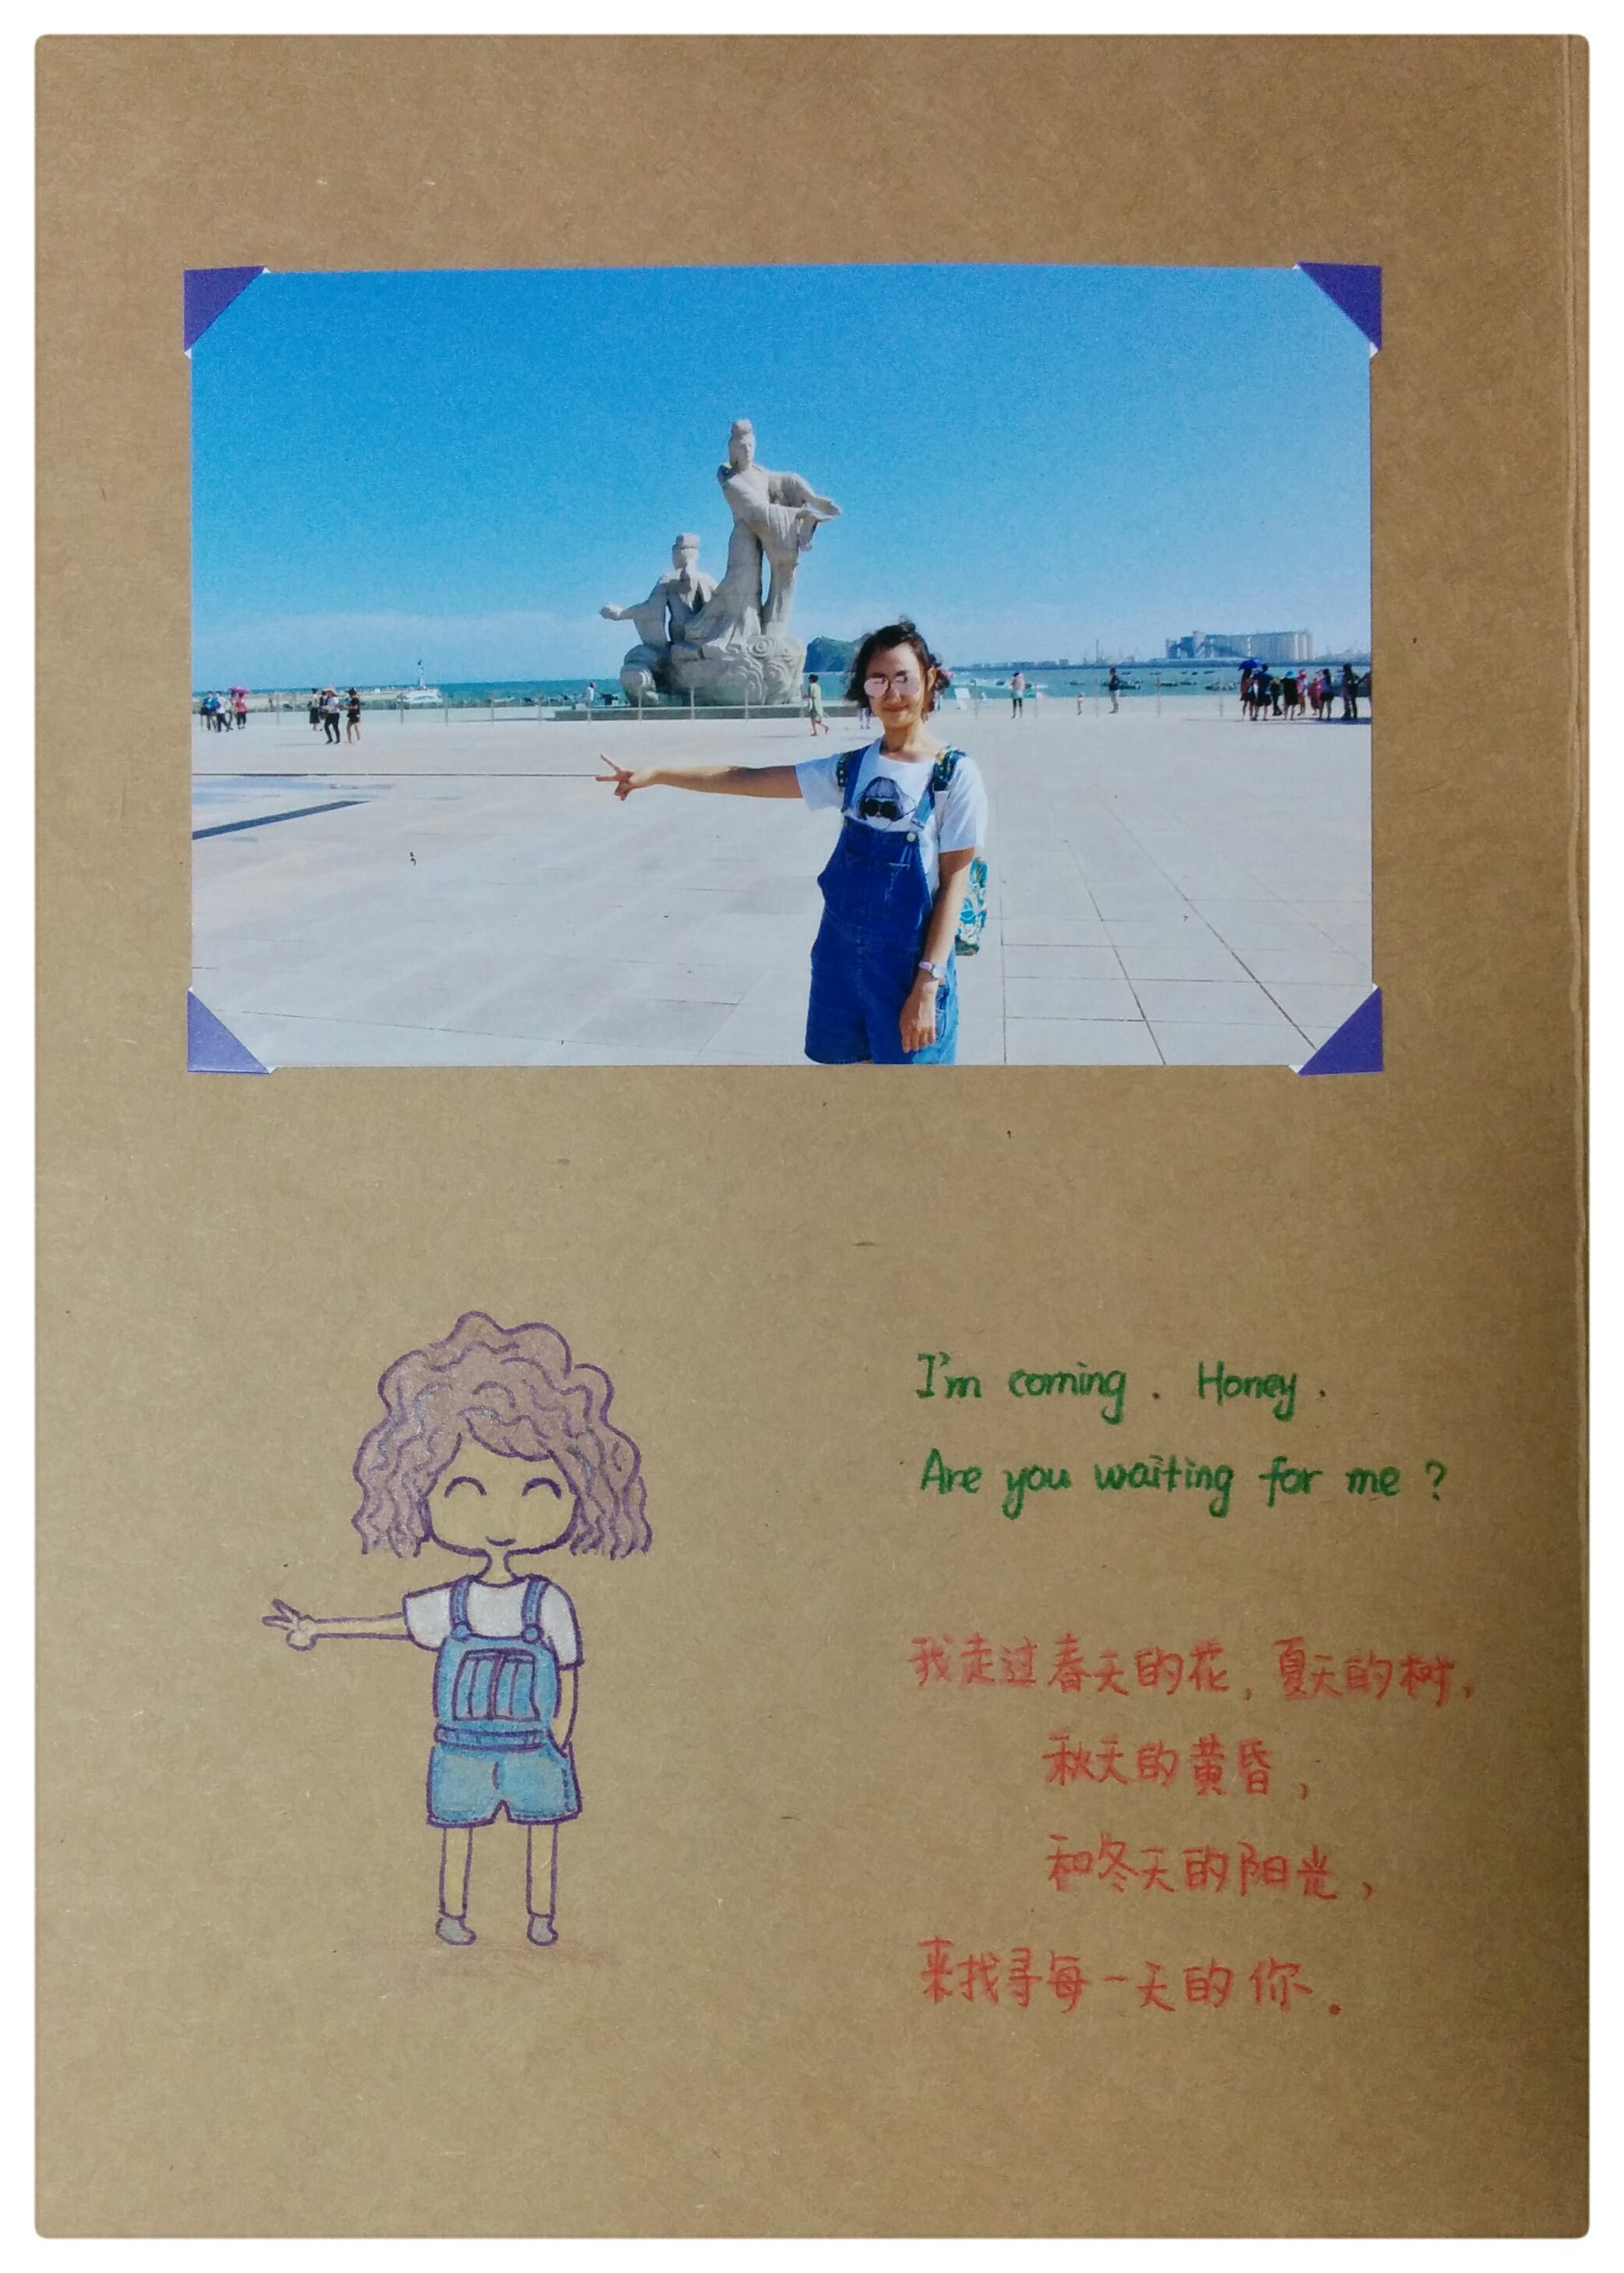 I'm coming. Honey.
Are you waiting for me?
我走过春天的花，夏天的树，
秋天的黄昏，
和冬天的阳光，
来找寻每一天的你。